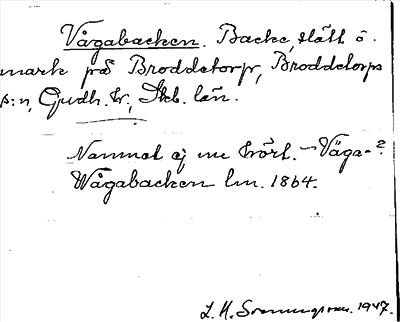 Vågabacken. Backe, slätt o.
mark på Broddetorp, Broddetorps
s:n, Gudh. hr, Skb. län.
Namnet ej nu hört. — Väga-?
Wågabacken lm. 1864.
1947.